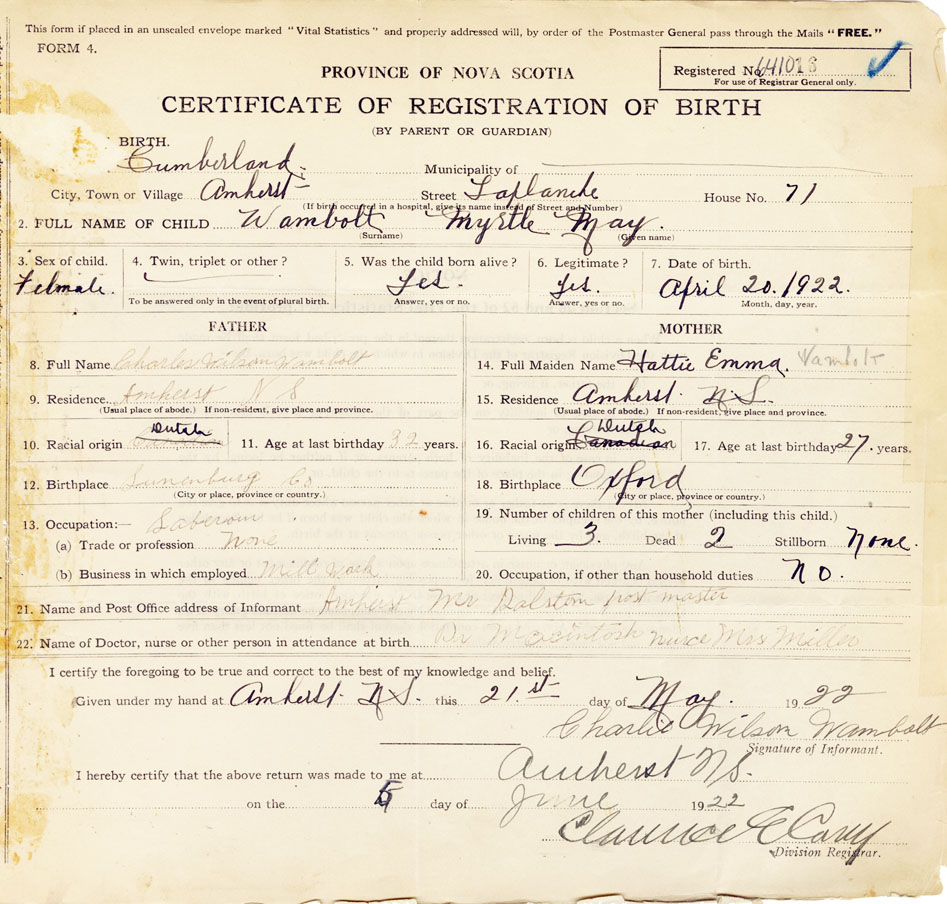 This form if placed in an unsealed envelope marked "Vital Statistics" and properly addressed will, by order of the Postmaster General pass through the Mails "FREE."
FORM 4.
Registered No. 641018
For use of Registrar General only.
PROVINCE OF NOVA SCOTIA
CERTIFICATE OF REGISTRATION OF BIRTH
(BY PARENT OR GUARDIAN)
BIRTH.
Cumberland Municipality of
City, Town or Village Amherst Street Laplanche House No. 71
(If birth occurred in a hospital, give its name instead of Street and Number)
2. FULL NAME OF CHILD Wambolt Myrtle May.
(Surname) (Given name)
3. Sex of child. 4. Twin, triplet or other? 5. Was the child born alive? 6. Legitimate? 7. Date of birth.
Felmale. Yes. Yes. April 20. 1922.
To be answered only in the event of plural birth. Answer, yes or no. Answer, yes or no. Month, day, year.
FATHER MOTHER
8. Full Name Charles Wilson Wambolt 14. Full Maiden Name Hattie Emma. Wambolt
9. Residence Amherst N S 15. Residence Amherst N.S.
(Usual place of abode.) If non-resident, give place and province. (Usual place of abode.) If non-resident, give place and province.
Dutch Dutch
10. Racial origin 11. Age at last birthday 32 years. 16. Racial origin Canadian 17. Age at last birthday 27. years.
12. Birthplace Lunenburg Co 18. Birthplace Oxford
(City or place, province or country.) (City or place, province or country.)
13. Occupation:— Laberour 19. Number of children of this mother (including this child.)
(a) Trade or profession None Living 3. Dead 2 Stillborn None.
(b) Business in which employed Mill 20. Occupation, if other than household duties No.
21. Name and Post Office address of Informant Amherst Mr Dalstom post master
22. Name of Doctor, nurse or other person in attendance at birth Dr Macintosh nurse Mrs Miller
I certify the foregoing to be true and correct to the best of my knowledge and belief.
Given under my hand at Amherst N.S. this 21st day of May. 1922
Charlie Wilson Wambolt
Signature of Informant.
I hereby certify that the above return was made to me at Amherst N.S.
on the 5 day of June 1922
Clarence E Casey
Division Registrar.